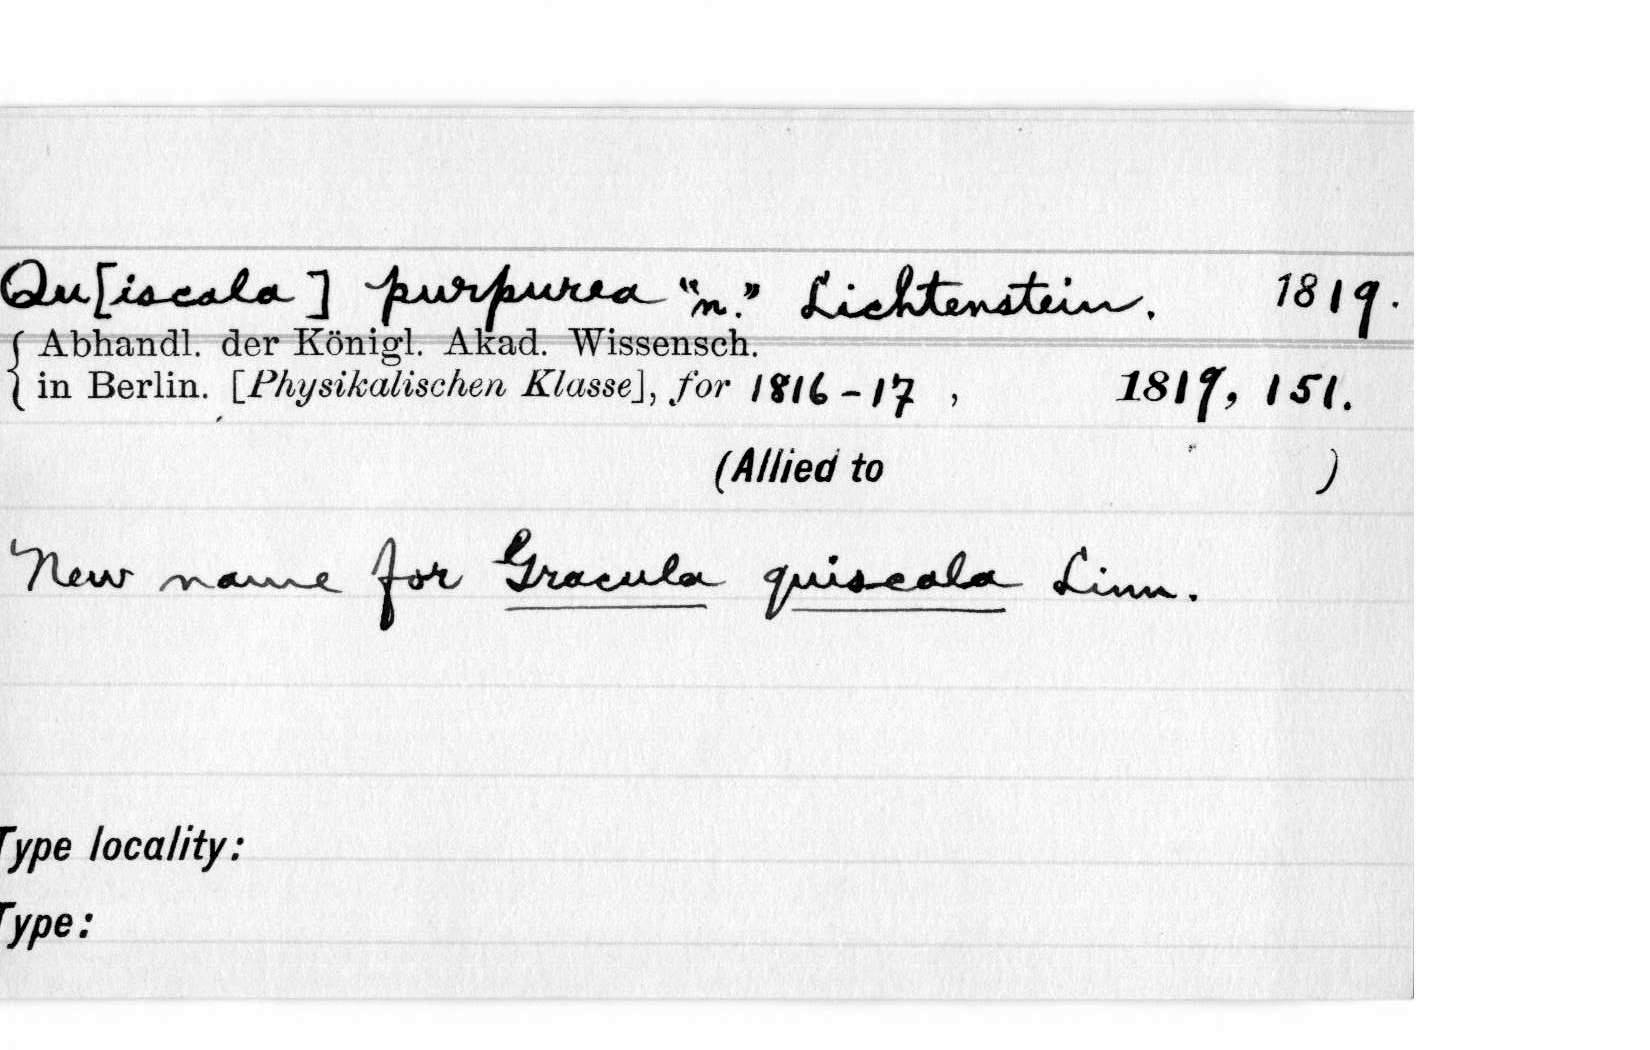 Qu[iscala] purpurea "n." Lichtenstein. 1819.
{ Abhandl. der Königl. Akad. Wissensch.
in Berlin. [Physikalischen Klasse], for 1816-17, 1819, 151.
(Allied to )
New name for Gracula quiscala Linn.
Type locality:
Type: